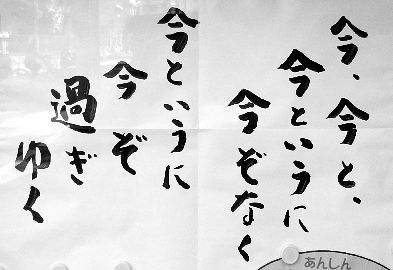 今、今と、
今というに
今ぞなく
今というに
今ぞ
過ぎ
ゆく
あんしん